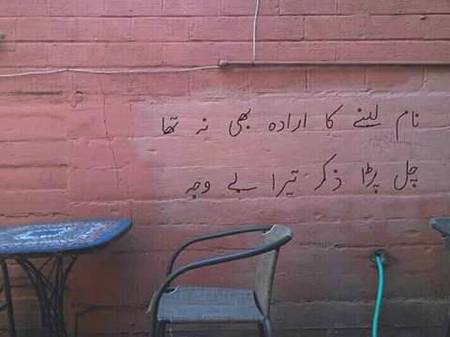 نام لینے کا ارادہ بھی نہ تھا
چل پڑا ذکر تیرا بے وجہ